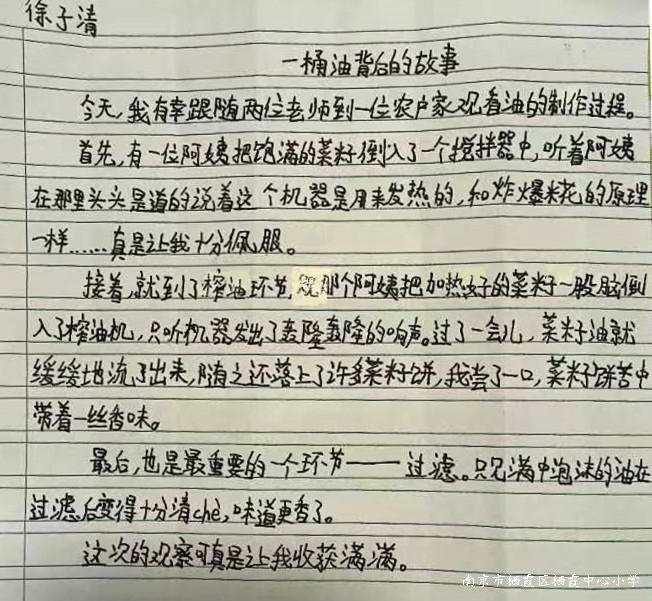 徐子清
一桶油背后的故事
今天,我有幸跟随两位老师到一位农户家观看油的制作过程。
首先,有一位阿姨把饱满的菜籽倒入了一个搅拌器中,听着阿姨
在那里头头是道的说着这个机器是用来发热的,和炸爆米花的原理
一样……真是让我十分佩服。
接着,就到了榨油环节,那个阿姨把加热好的菜籽一股脑倒
入了榨油机,只听机器发出了轰隆轰隆的响声。过了一会儿,菜籽油就
缓缓地流了出来,随之还落上了许多菜籽饼,我尝了一口,菜籽饼苦中
带着一丝香味。
最后,也是最重要的一个环节——过滤。只见满中泡沫的油在
过滤后变得十分清chè,味道更香了。
这次的观察可真是让我收获满满。
南京市栖霞区栖霞中心小学